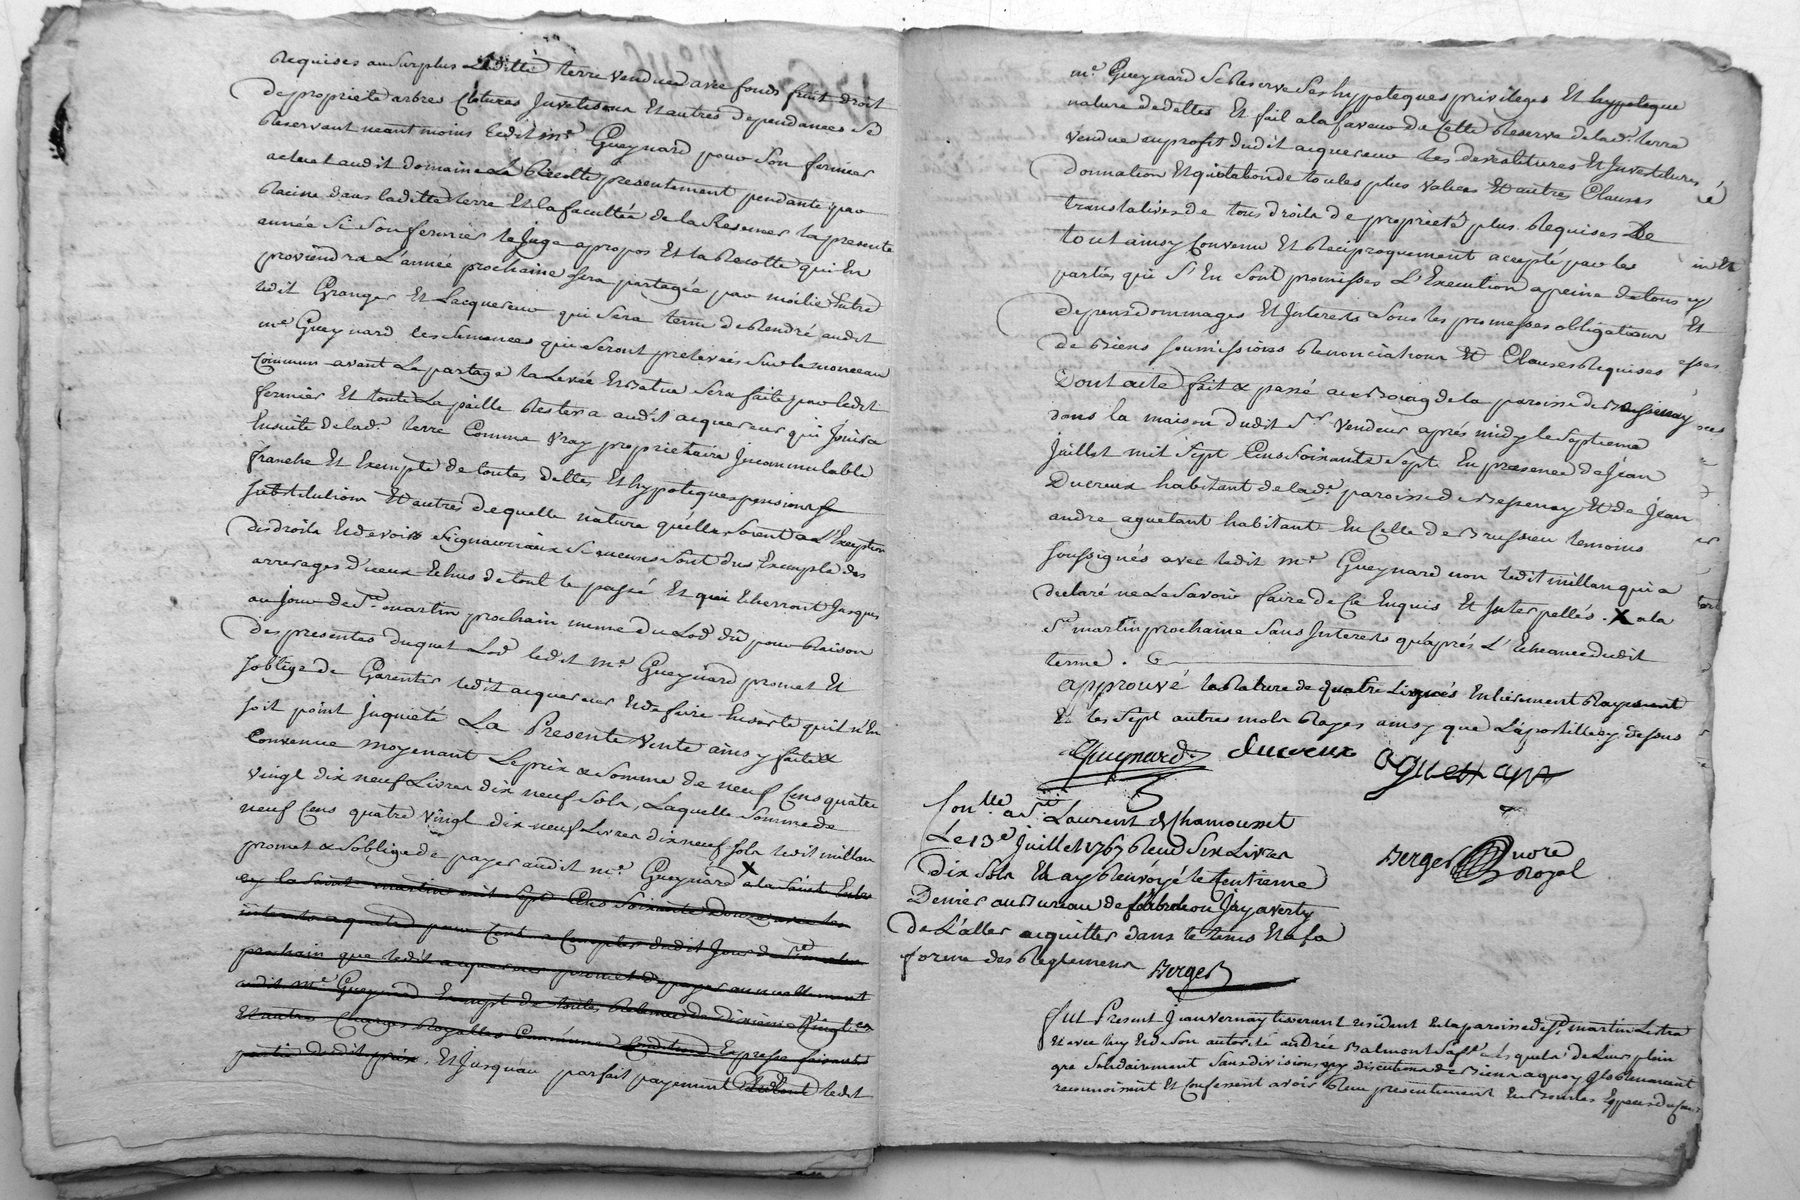 Requises au Surplus Laditte terre vendue avec fonds fruit droit
de proprieté arbres Clotures Jnvetison Et autres dependances Se
Reservant neantmoins Ledit Me. Gueynard pour Son fermier
actuel audit domaine La Recolte presentement pendante par
Racine dans laditte terre Et la faculté de la Resemer la presente
année Si Son fermier le Juge apropos Et la Recolte qui En
proviendra L'année prochaine Sera partagée par moitié Entre
ledit Granger Et Lacquereur qui Sera tenu de Rendre audit
me Gueynard les Semences qui Seront prelevées Sur le monceau
Commun avant Le partage la Levée Et Batue Sera faite par ledit
fermier Et toute La paille Restera audit acquereur qui Jouira
Ensuite de lad. terre Comme vray proprietaire Jncommutable
franche Et Exempte de toutes dettes Et hypoteques pensions
Substitutions Et autres de quelle nature qu'elles Soient a L'Exeption
des droits Et devoirs Seigneuriaux Si aucuns Sont dus Exempte des
arrerages d'iceux Echus de tout le passé Et qui Echerront Jusques
au jour de St. martin prochain meme du Lod du pour Raison
des presentes duquel Lod ledit Me. Gueynard promet Et
Soblige de Garentir ledit acquereur Et de faire Ensorte qu'il n'En
Soit point Jnquieté La Presente Vente ainsy faite &
Convenue moyenant Le prix & Somme de neuf Cens quatre
vingt dix neuf Livres dix neuf Sols, Laquelle Somme de
neuf Cens quatre vingt dix neuf Livres dix neuf Sols ledit millan
promet & Soblige de payer audit me. Gueynard X a la Saint
la Saint martin mil Sept Cens Soixante Douze avec les
interets a quatre pour Cent a Compter dudit Jour de St
prochain que ledit acquereur promet de payer annuellement
audit me Gueynard Exempt de toutes Retenues de dixieme Vingtieme
Et autres Charges Royalles Condition Expresse faisant
partie dudit prix. Et Jusqu'au parfait payement ledit
me Gueynard Se Reserve Ses hypoteques privileges Et hypoteque
nature de dettes Et fait a la faveur de Cette Reserve de lad. terre
vendue au profit dudit acquereur les devestitures Et Jnvestitures
Donnation Et quitation de toutes plus values Et autres Clauses
translatives de tous droits de proprieté plus Requises Le
tout ainsy Convenu Et Reciproquement accepté par les
parties qui S'En Sont promisses L'Execution a peine de tous
depens dommages Et Jnterets Sous les promesses obligations
de Biens Soumissions Renonciations Et Clauses Requises
Dont acte fait & passé au Bourg de la paroisse de Bessenay
dans la maison dudit Sr vendeur aprés midy le Septieme
Juillet mil Sept Cens Soixante Sept En presence de Jean
Ducreux habitant de lad. paroisse de Bessenay Et de Jean
andre aguetant habitant En Celle de Brussieu temoins
Soussignés avec ledit Me. Gueynard non ledit millan qui a
declaré ne Le Savoir faire de Ce Enquis Et Jnterpellés. X a la
St martin prochaine Sans Jnterets qu'aprés L'Echeance dudit
terme.
approuvé la Rature de quatre Lignes Entierement Rayes
Et les Sept autres mots Rayes ainsy que L'apostille cy dessus
Gueynard ducreux aguetant
Conlle. a St. Laurent de Chamousset
Le 13e Juillet 1767 Reçu Six Livres
Dix Sols Et ay Renvoyé le Centieme
Denier au Bureau de Jay averty
De L'aller acquitter dans le tems Et a la
forme des Reglemens Berger
Berger nore
Royal
Fut Present Jean vernay tisserant resident En la paroisse de St. martin Letra
Et avec luy Et de Son autorité andrée Balmont Sa fe. lesquels de Leur plein
gre Solidairement Sans division ny discution de Biens a quoy Jls Renoncent
reconnoissent Et Confessent avoir Reçu presentement En Bonnes Especes du Cours